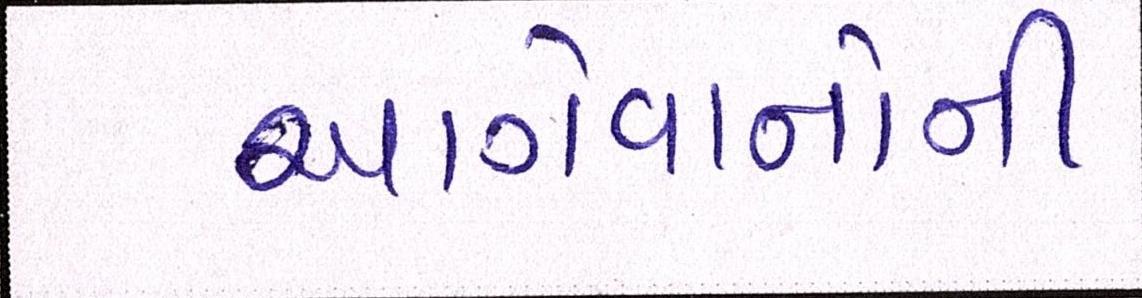 આગેવાનોની